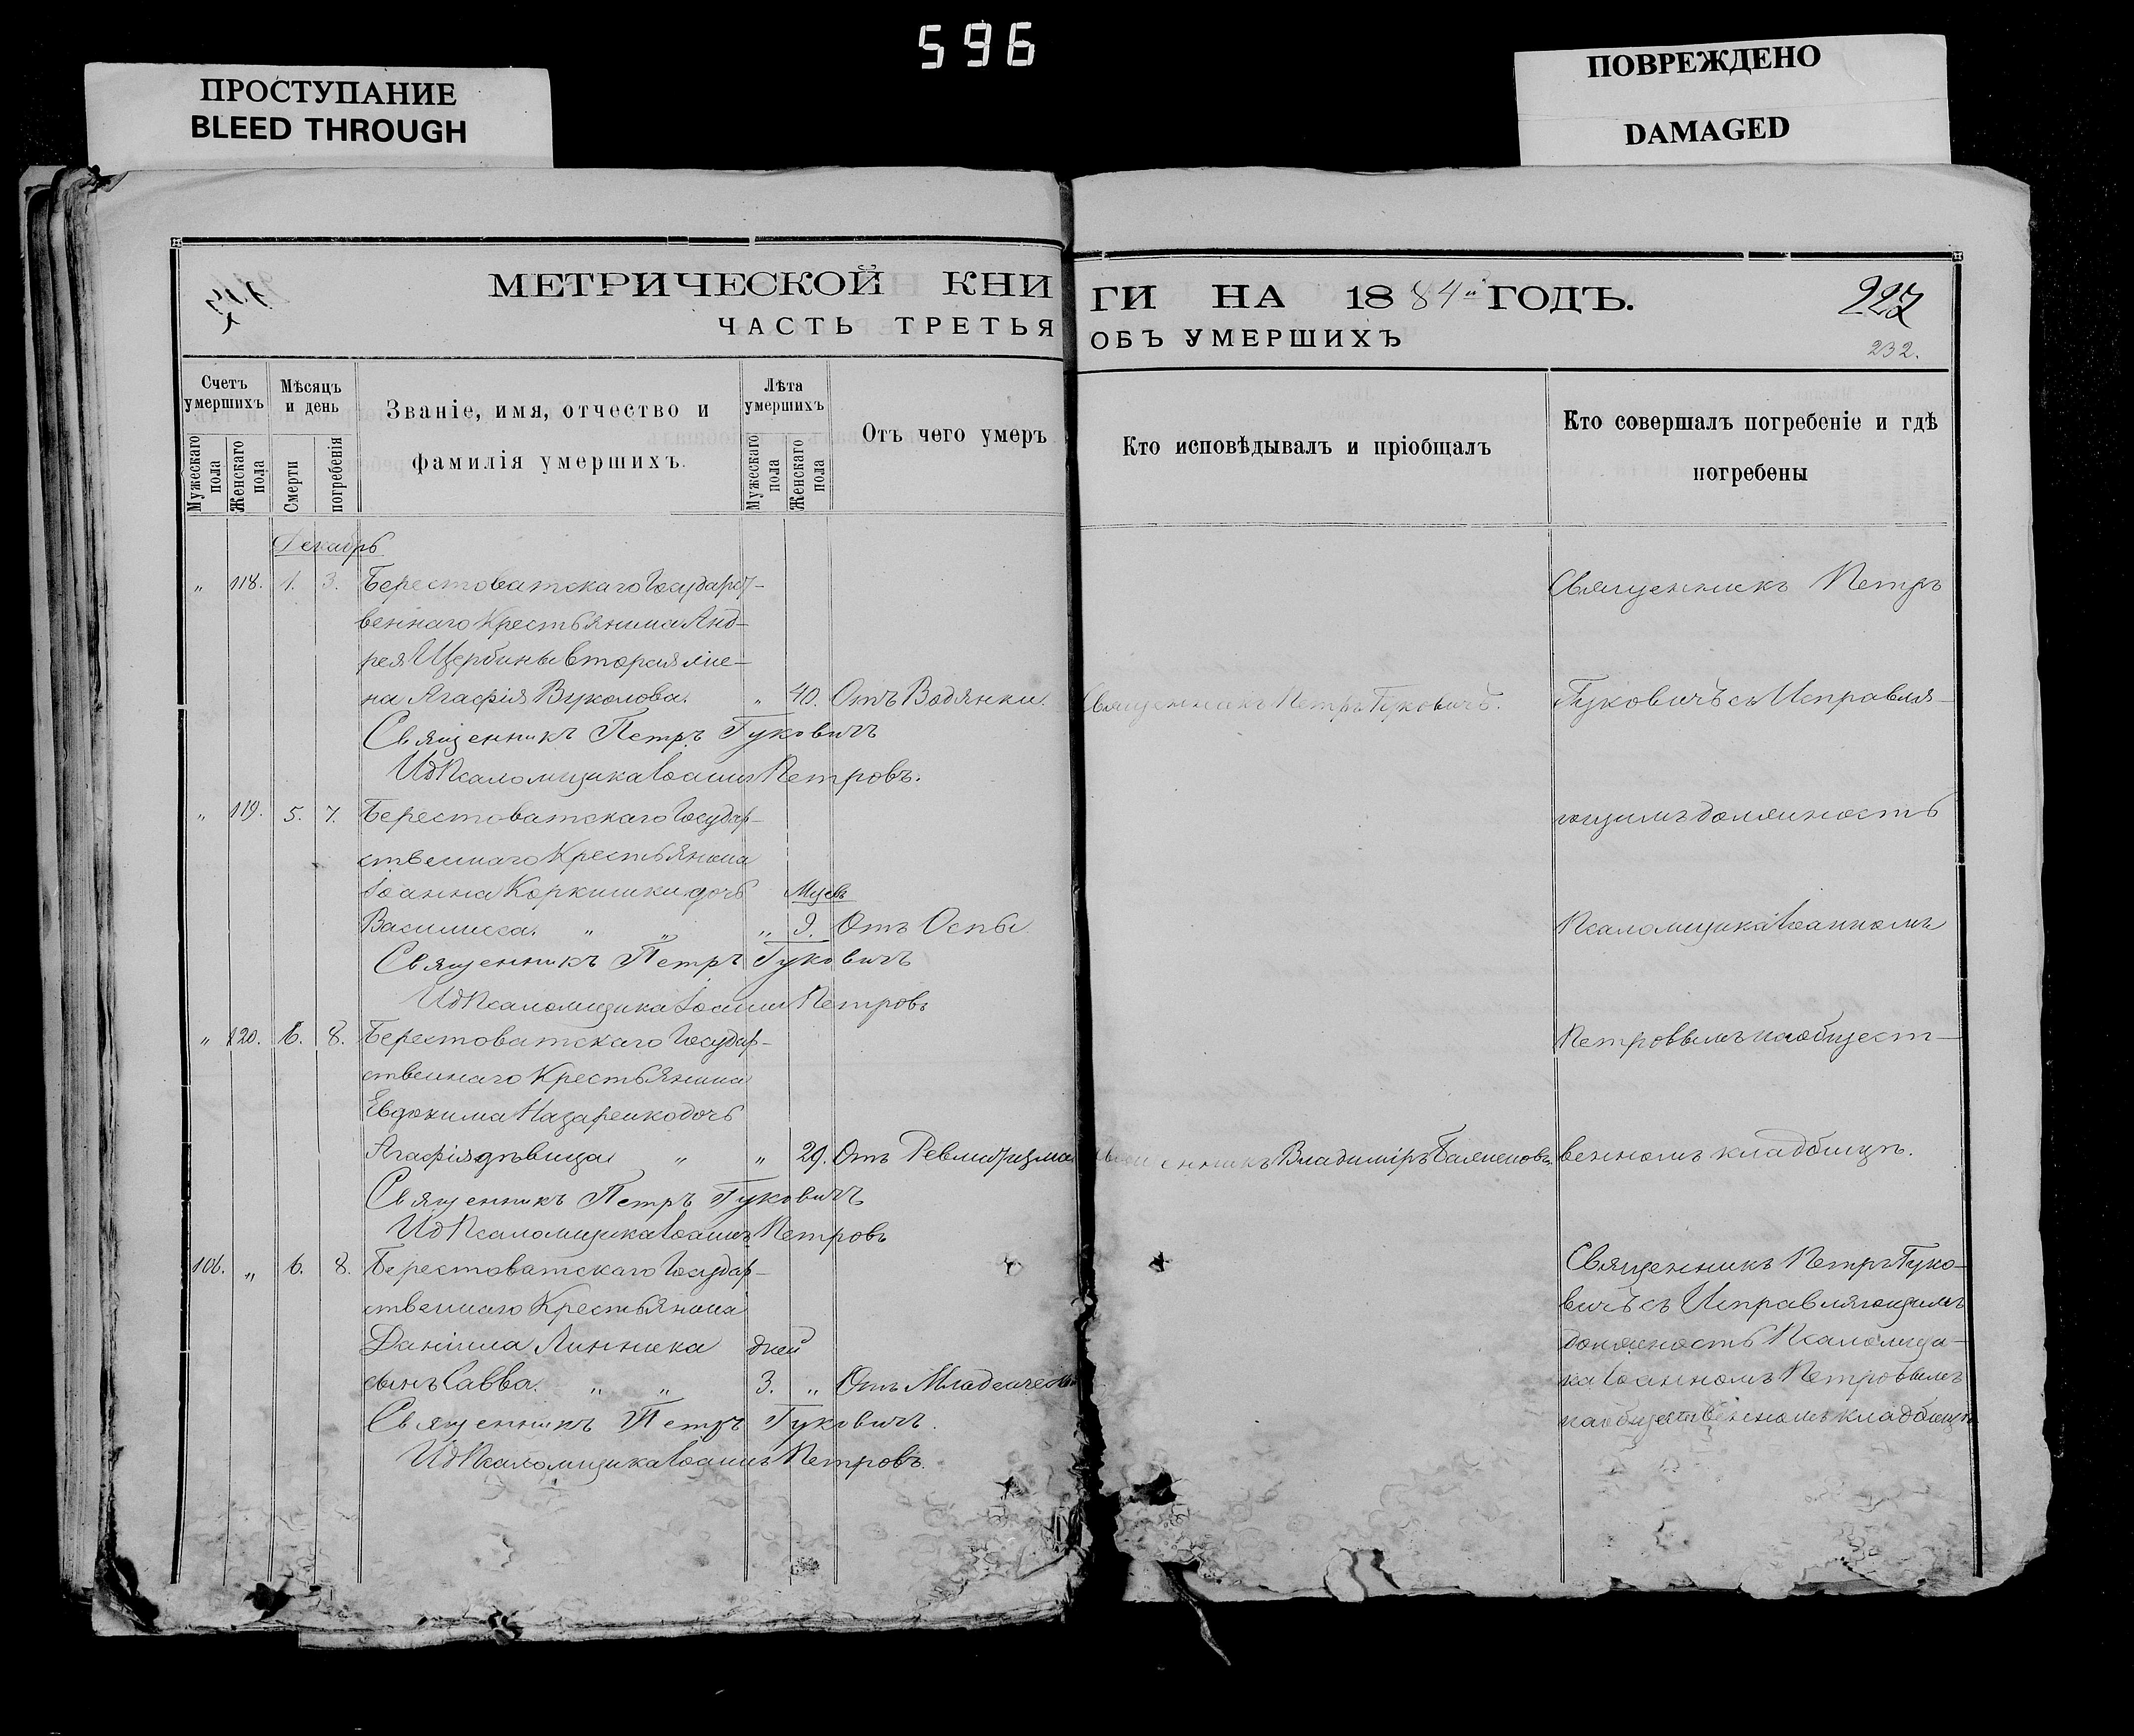 596
ПРОСТУПАНИЕ
BLEED THROUGH
ПОВРЕЖДЕНО
DAMAGED
МЕТРИЧЕСКОЙ КНИ
ЧАСТЬ ТРЕТЬЯ
ГИ НА 1884й ГОДЪ.
ОБЪ УМЕРШИХЪ
227
232.
Счетъ умершихъ
Мужескаго пола
Женскаго пола
Мѣсяцъ и день
Смерти
погребенія
Званіе, имя, отчество и
фамилія умершихъ.
Лѣта умершихъ
Мужескаго пола
Женскаго пола
Отъ чего умеръ
Кто исповѣдывалъ и пріобщалъ
Кто совершалъ погребеніе и гдѣ
погребены
Декабрь
„ 118. 1. 3. Берестоватскаго Государст-
веннаго Крестьянина Анд-
рея Щербины вторая же-
на Агафія Вуколова. „ 40. Отъ Водянки. Священникъ Петръ Гуковичъ.
Священникъ Петръ Гуковичъ
Ид Псаломщика Іоаннъ Петровъ.
„ 119. 5. 7. Берестоватскаго Государ-
ственнаго Крестьянина
Іоанна Коркишки дочь Мцевъ
Василисса. „ „ „ 9. Отъ Оспы
Священникъ Петръ Гуковичъ
Ид Псаломщика Іоаннъ Петровъ
„ 120. 6. 8. Берестоватскаго Государ-
ственнаго Крестьянина
Евдокима Назаренко дочь
Агафія дѣвица „ „ 29. Отъ Ревматизма Священникъ Владиміръ Баженовъ.
Священникъ Петръ Гуковичъ
Ид Псаломщика Іоаннъ Петровъ
106. „ 6. 8. Берестоватскаго Государ-
ственнаго Крестьянина
Даніила Линника дней
сынъ Савва. „ „ 3. „ Отъ Младенческ
Священникъ Петръ Гуковичъ.
Ид Псаломщика Іоаннъ Петровъ.
Священникъ Петръ
Гуковичъ съ Исправля-
ющимъ должность
Псаломщика Іоанномъ
Петровымъ на общест-
венномъ кладбищѣ.
Священникъ Петръ Гуко-
вичъ съ Исправляющимъ
должность Псаломщи-
ка Іоанномъ Петровымъ
на общественномъ кладбищѣ